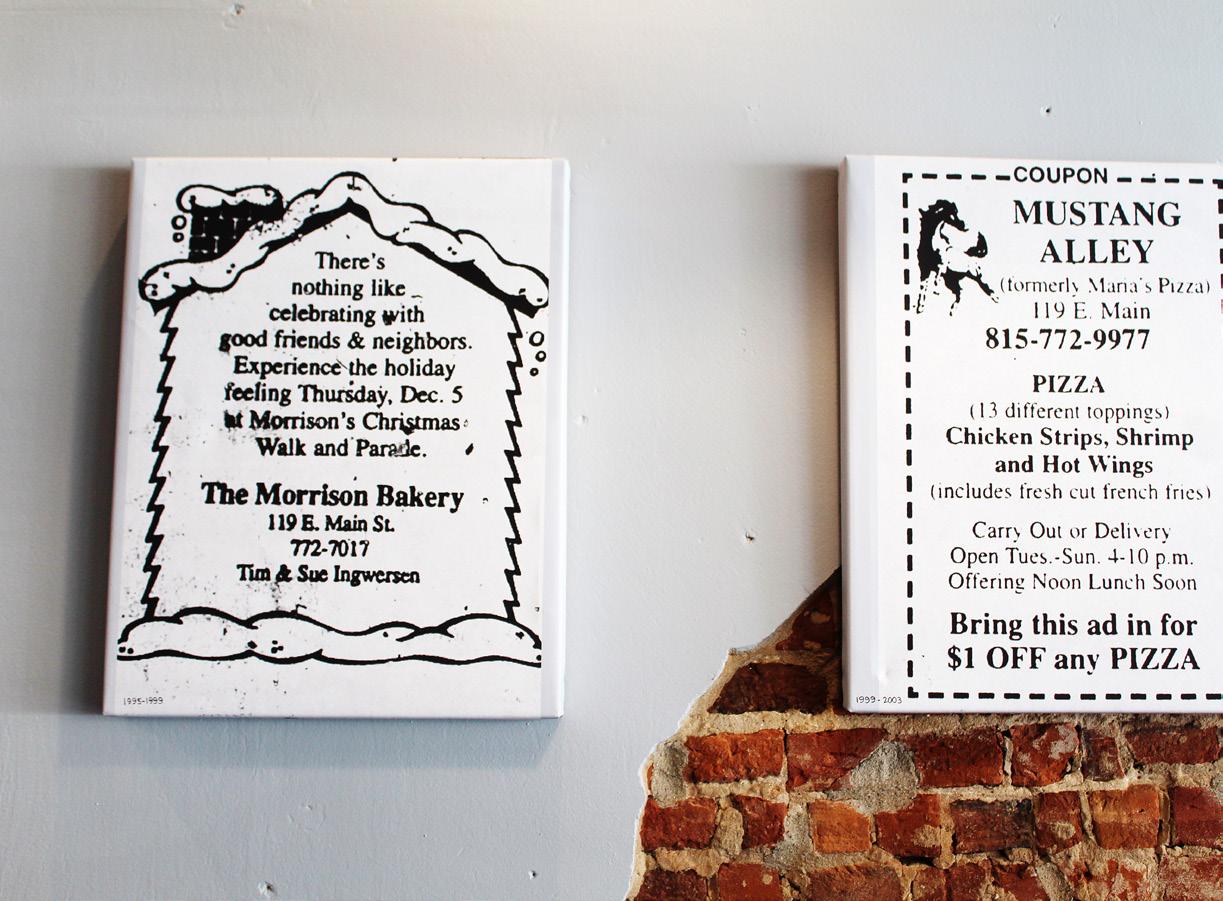 There's
nothing like
celebrating with
good friends & neighbors.
Experience the holiday
feeling Thursday, Dec. 5
at Morrison's Christmas
Walk and Parade.
The Morrison Bakery
119 E. Main St.
772-7017
Tim & Sue Ingwersen
1995-1999
COUPON
MUSTANG
ALLEY
(formerly Maria's Pizza)
119 E. Main
815-772-9977
PIZZA
(13 different toppings)
Chicken Strips, Shrimp
and Hot Wings
(includes fresh cut french fries)
Carry Out or Delivery
Open Tues.-Sun. 4-10 p.m.
Offering Noon Lunch Soon
Bring this ad in for
$1 OFF any PIZZA
1999-2003